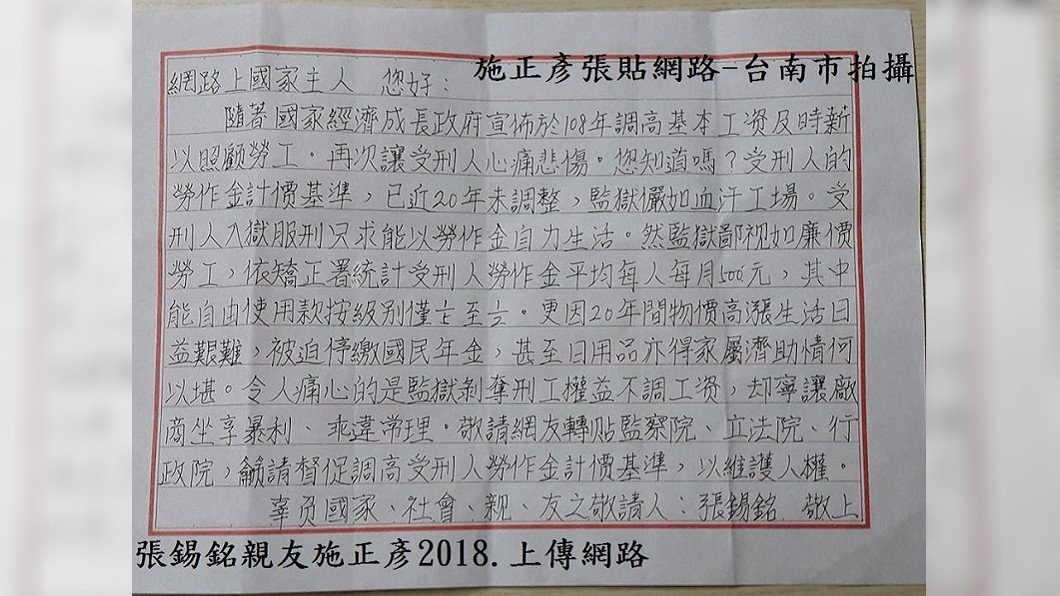 施正彥張貼網路-台南市拍攝
網路上國家主人 您好：
隨著國家經濟成長政府宣佈於108年調高基本工资及時薪
以照顧勞工．再次讓受刑人心痛悲傷。您知道嗎？受刑人的
勞作金計價基準，已近20年未調整，監獄儼如血汗工場。受
刑人入獄服刑只求能以勞作金自力生活。然監獄鄙视如廉價
勞工，依矯正署統計受刑人勞作金平均每人每月500.元，其中
能自由使用款按級别僅至。更因20年間物價高漲生活日
益艱難，被迫停繳國民年金，甚至日用品亦得家屬濟助情何
以堪。令人痛心的是監獄剝奪刑工權益不調工资，却寧讓廠
商坐享暴利、乖違常理．敬請網友轉貼監察院、立法院、行
政院，籲請督促調高受刑人勞作金計價基準，以維護人權．
辜负國家、社會、親、友之敬請人：張錫銘 敬上
張錫銘親友施正彥2018.上傳網路